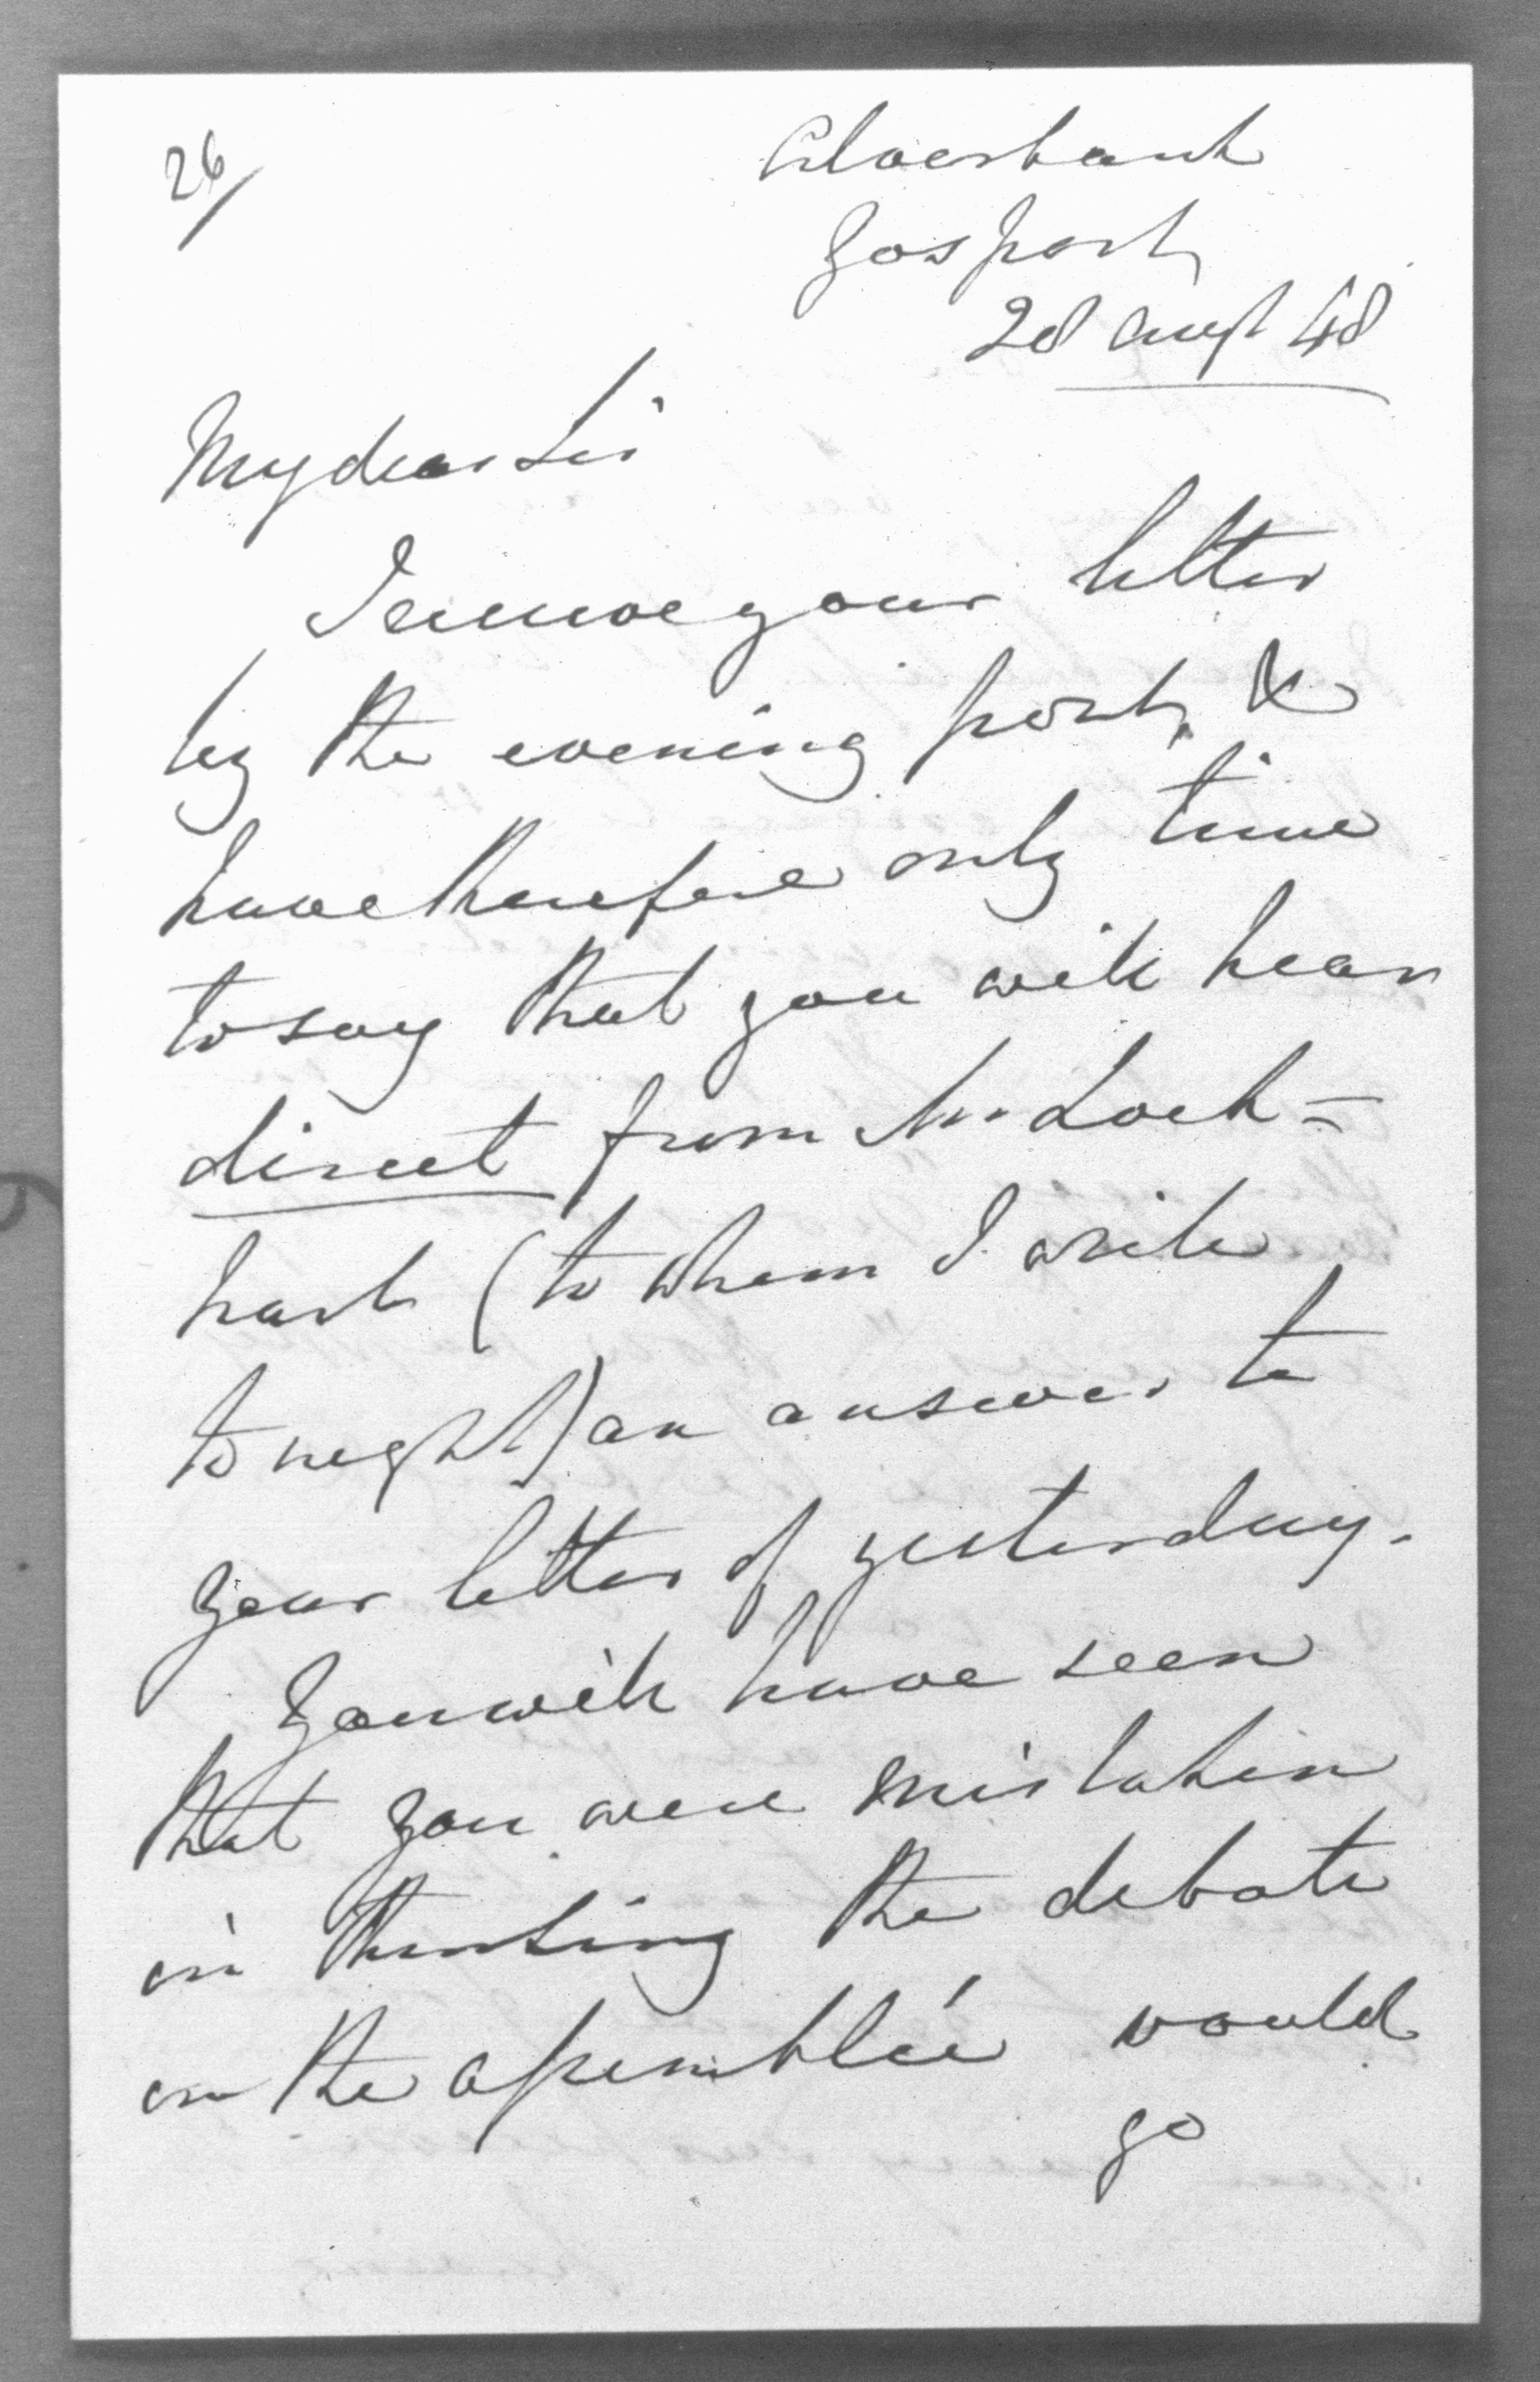 26/
Alverbank
Gosport
28 Augt 48
My dear Sir
I receive your letter
by the evening post, &
have therefore only time
to say that you will hear
direct from Mr. Lock=
hart (to whom I write
to night) an answer to
your letter of yesterday.
You will have seen
that you were mistaken
in thinking the debate
in the assemblée would
go